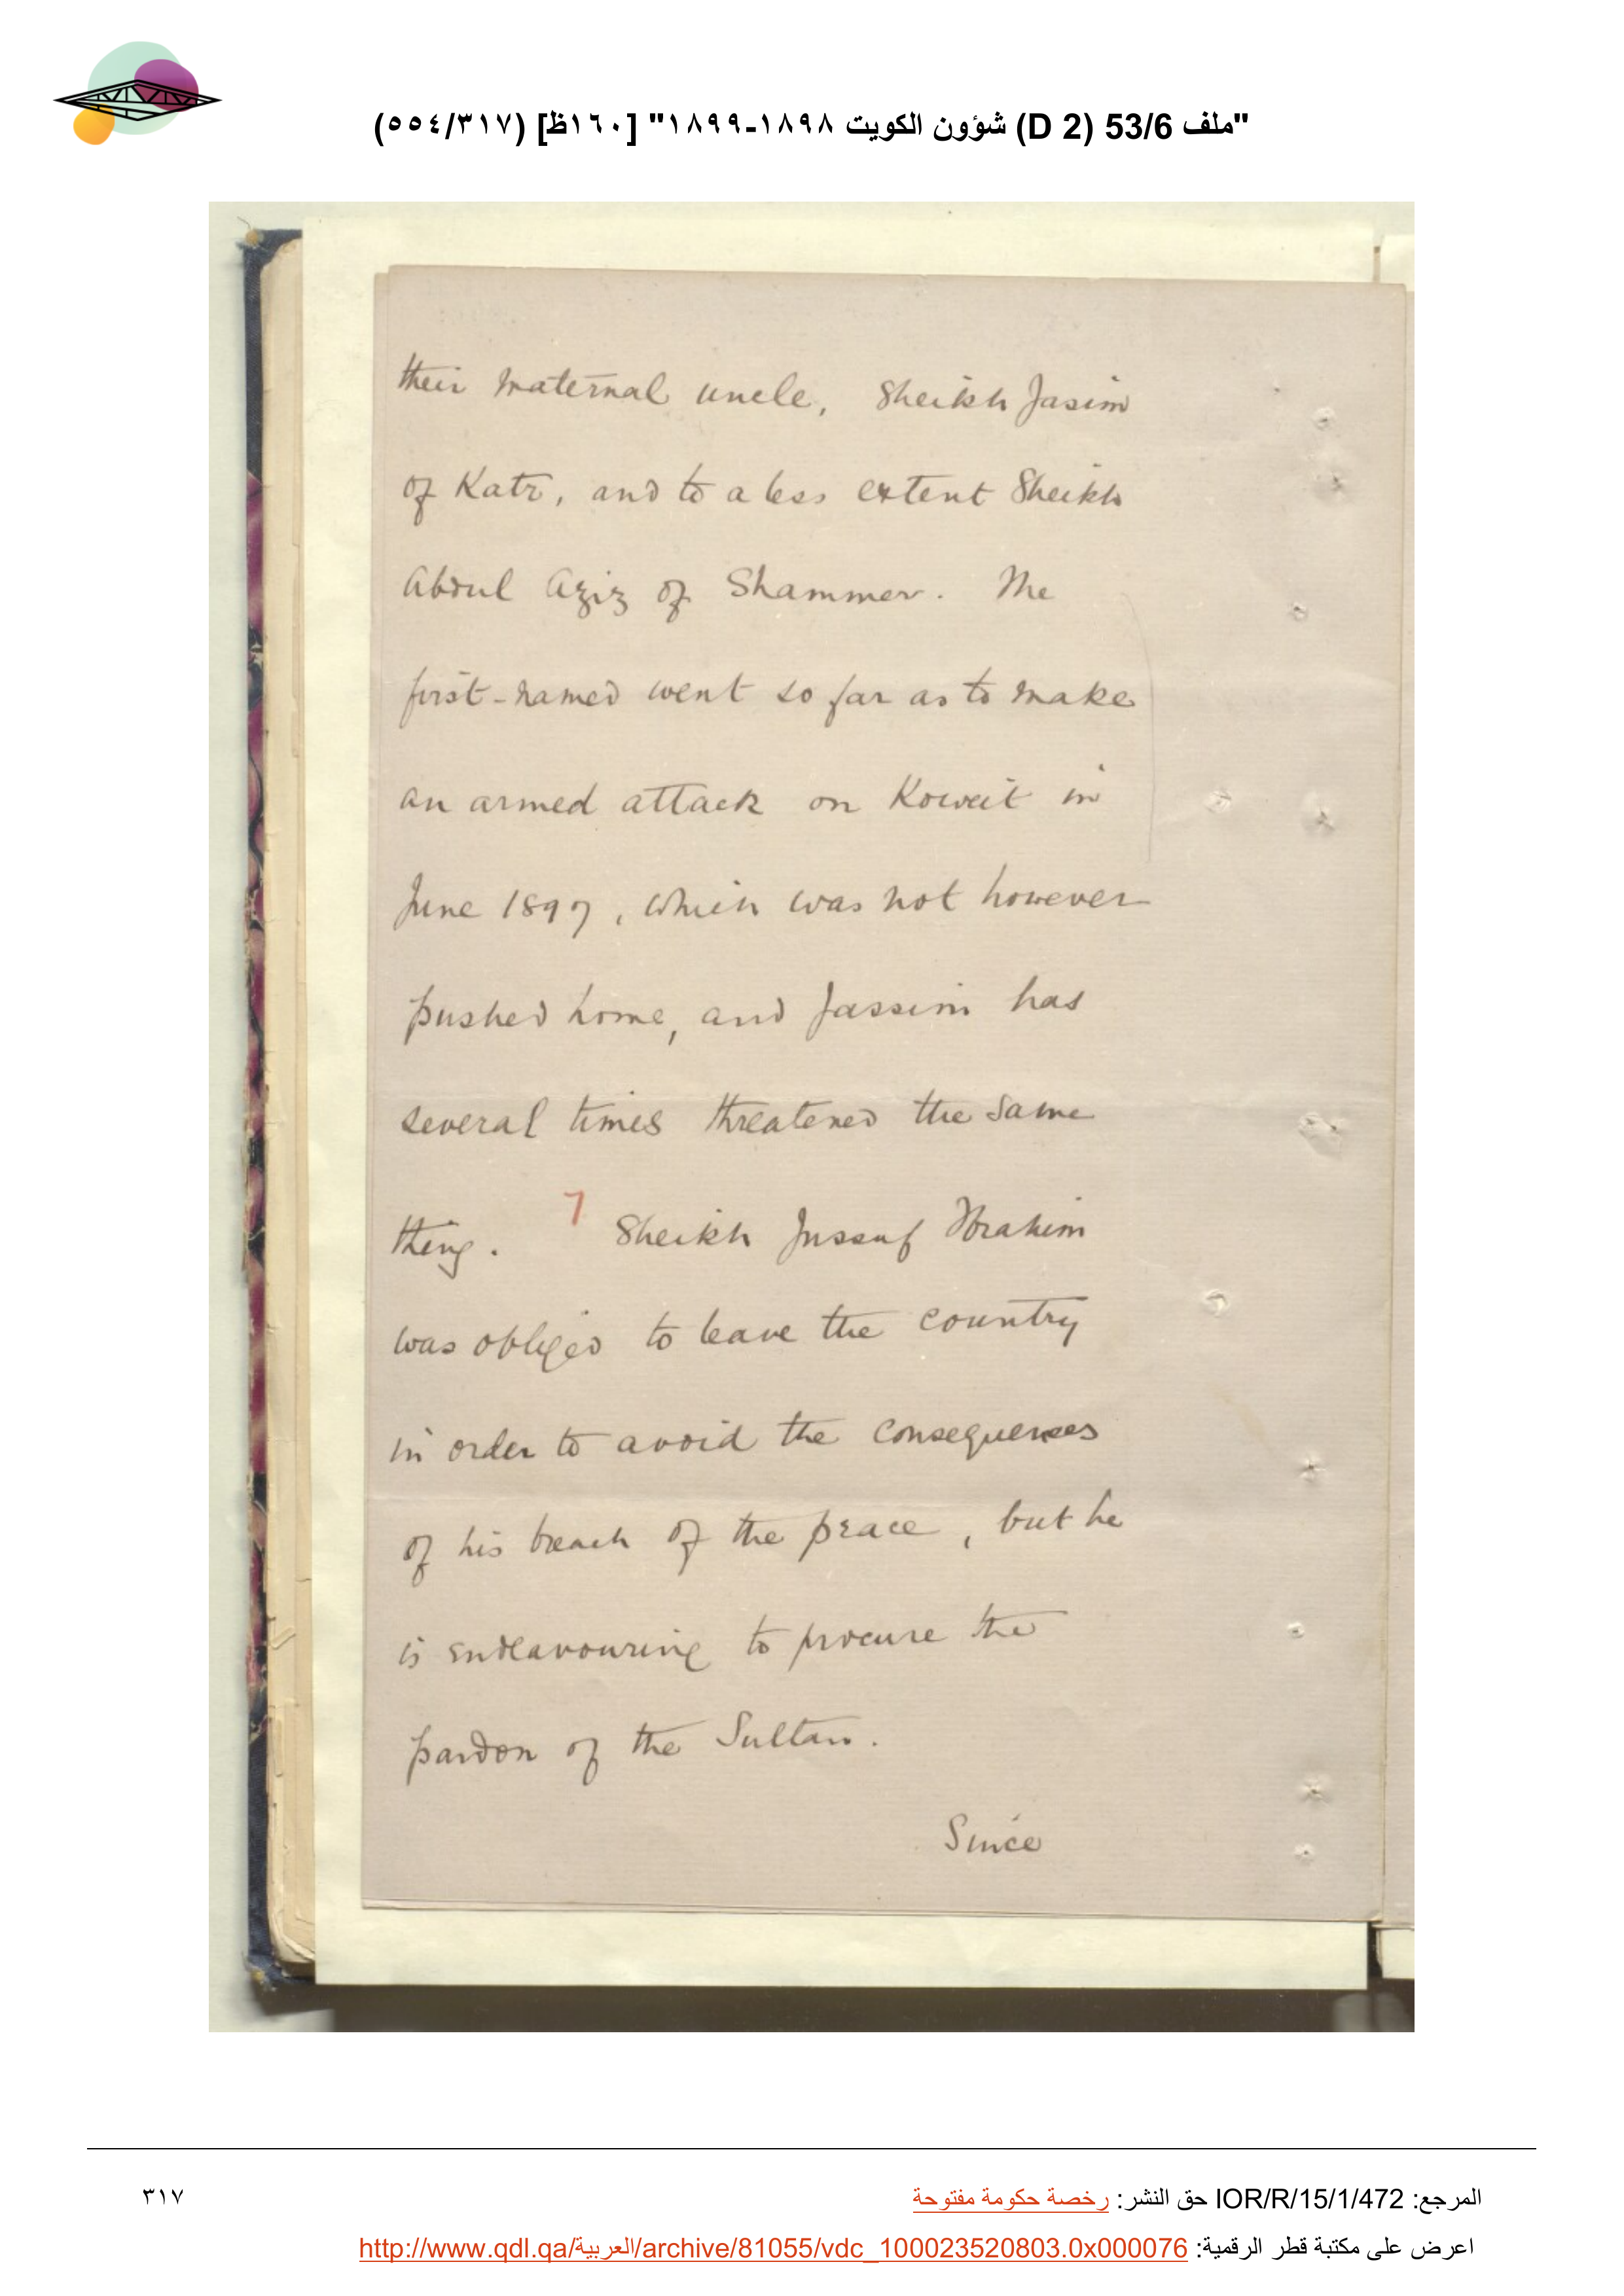 "ملف 53/6 (D 2) شؤون الكويت ١٨٩٨-١٨٩٩" [١٦٠ظ] (٥٥٤/٣١٧)
their maternal uncle, Sheikh Jasim
of Katr, and to a less extent Sheikh
Abdul Aziz of Shammer. The
first-named went so far as to make
an armed attack on Koweit in
June 1897, which was not however
pushed home, and Jassim has
several times threatened the same
thing. 7 Sheikh Jussuf Ibrahim
was obliged to leave the country
in order to avoid the consequences
of his breach of the peace, but he
is endeavouring to procure the
pardon of the Sultan.
Since
المرجع: IOR/R/15/1/472 حق النشر: رخصة حكومة مفتوحة
٣١٧
اعرض على مكتبة قطر الرقمية: http://www.qdl.qa/العربية/archive/81055/vdc_100023520803.0x000076